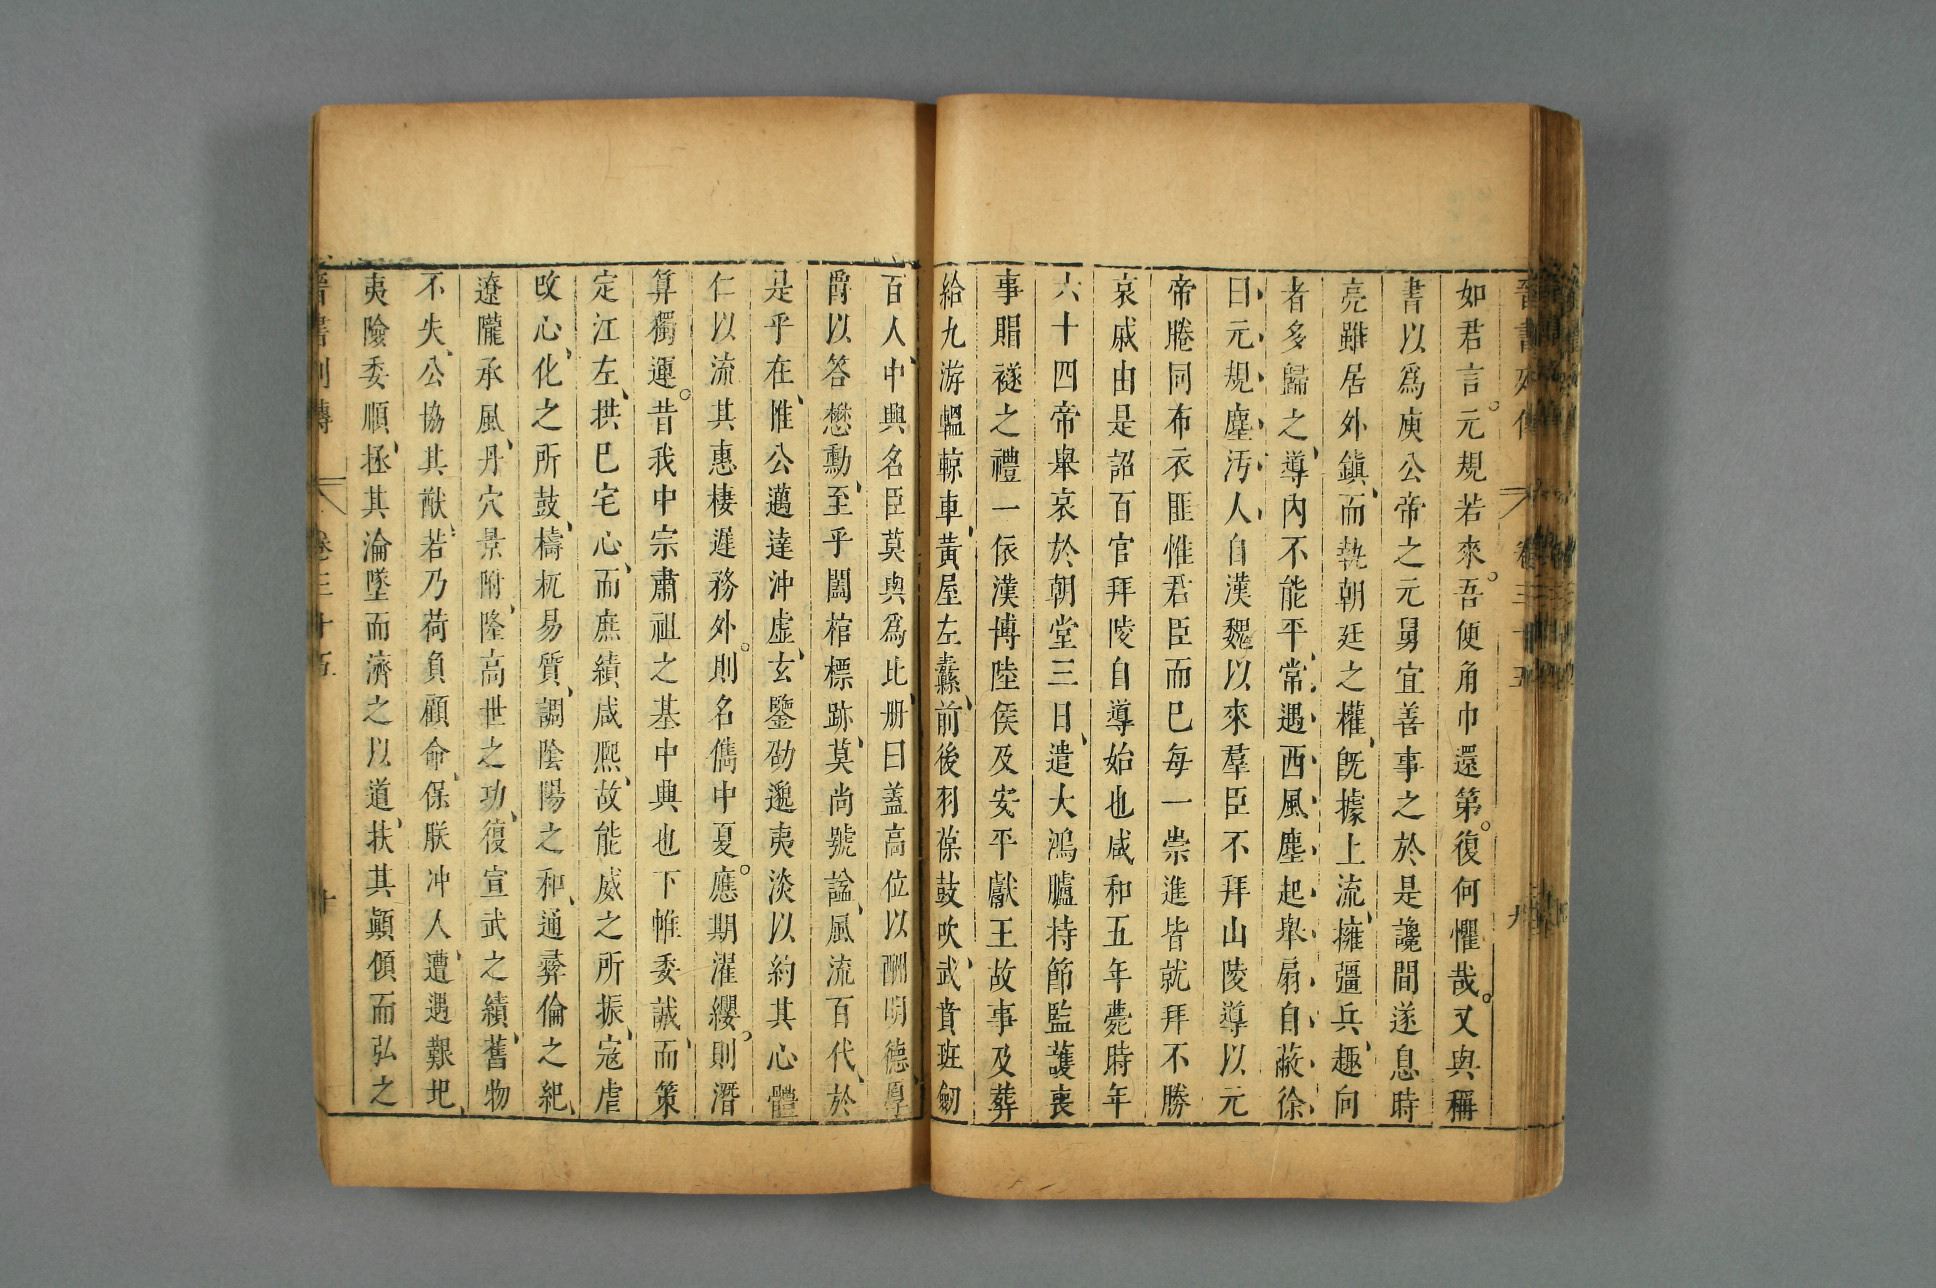 晉書列傳 卷三十五 九
如君言元規若來吾便角巾還第復何懼哉又與稱
書以爲庾公帝之元舅宜善事之於是讒間遂息時
亮雖居外鎮而執朝廷之權旣據上流擁彊兵趣向
者多歸之導內不能平常遇西風塵起舉扇自蔽徐
曰元規塵汚人自漢魏以來羣臣不拜山陵導以元
帝睠同布衣匪惟君臣而已每一崇進皆就拜不勝
哀戚由是詔百官拜陵自導始也咸和五年薨時年
六十四帝舉哀於朝堂三日遣大鴻臚持節監護喪
事賵襚之禮一依漢博陸侯及安平獻王故事及葬
給九游轀輬車黃屋左纛前後羽葆鼓吹武賁班劒
百人中興名臣莫與爲比册曰蓋高位以酬明德厚
爵以答懋勳至乎闔棺標跡莫尚號謚風流百代於
是乎在惟公邁達沖虛玄鑒劭邈夷淡以約其心體
仁以流其惠棲遲務外則名儁中夏應期濯纓則潛
算獨運昔我中宗肅祖之基中興也下帷委誠而策
定江左拱己宅心而庶績咸熙故能威之所振寇虐
改心化之所鼓檮杌易質調陰陽之和通彝倫之紀
遼隴承風丹穴景附隆高世之功復宣武之績舊物
不失公協其猷若乃荷負顧命保朕冲人遭遇艱圯
夷險委順拯其淪墜而濟之以道扶其顚傾而弘之
晉書列傳 卷三十五 十